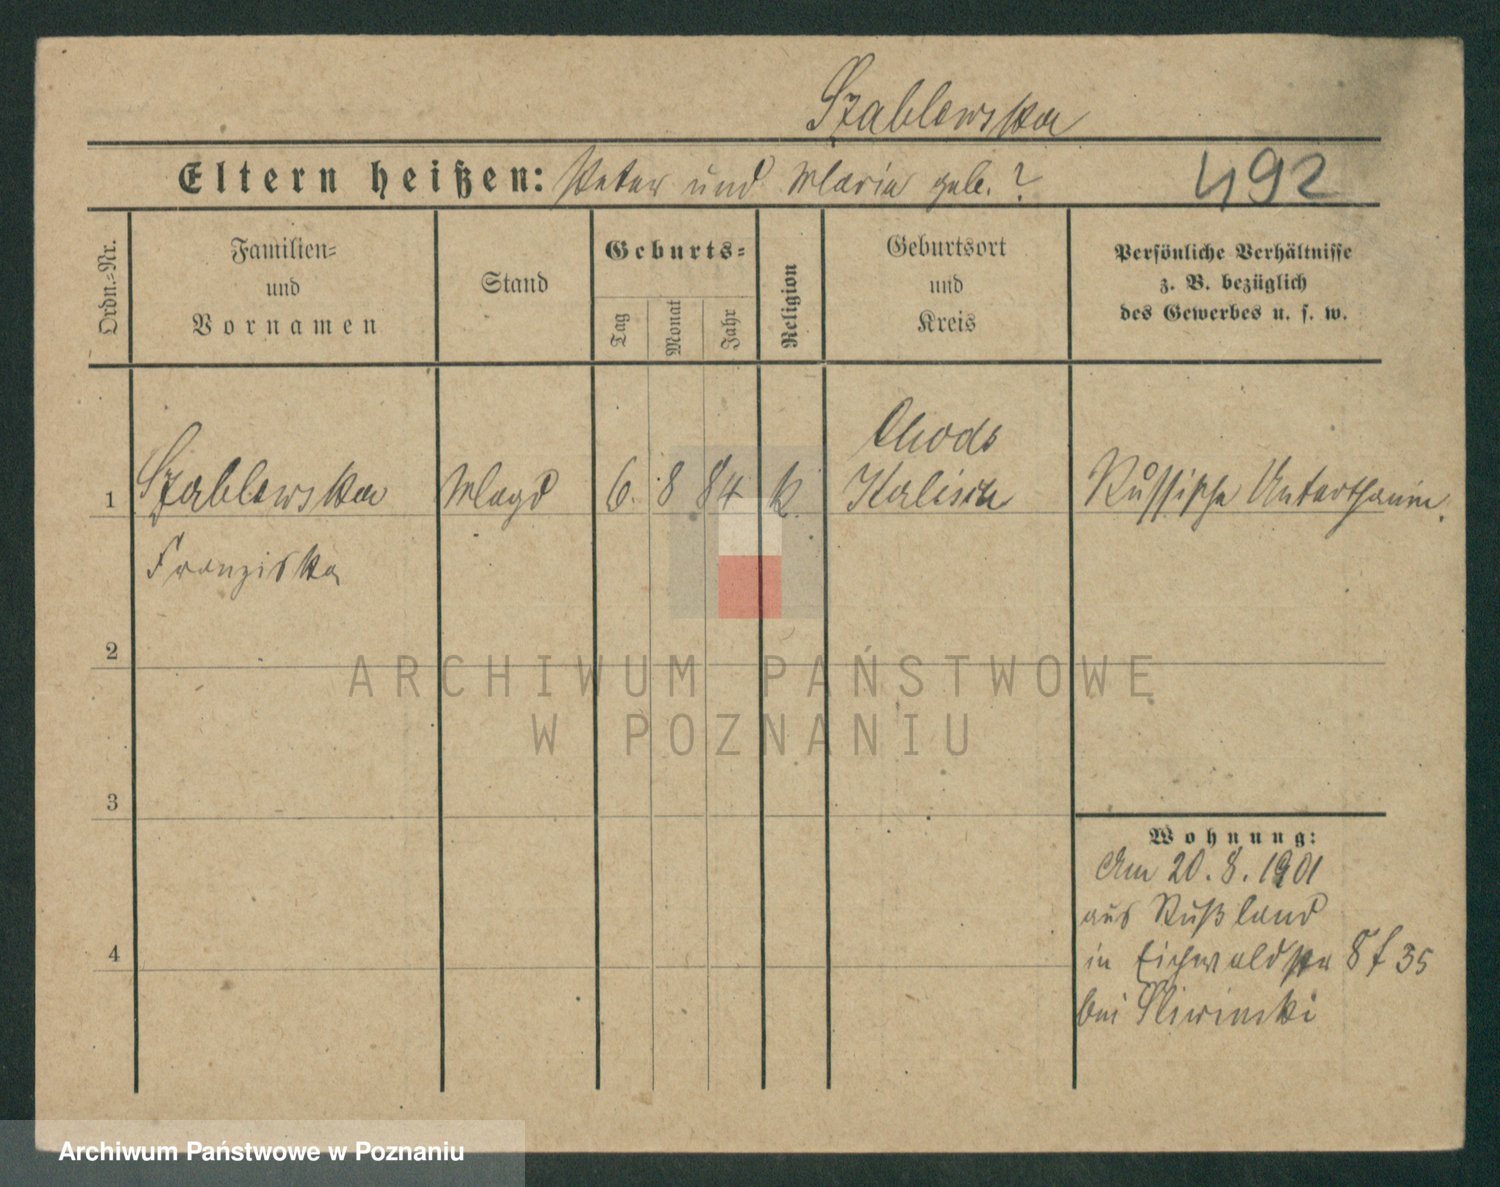 Szablewska
Eltern heißen: Peter und Maria geb. ?
492
Ordn.=Nr.
Familien=
und
Vornamen
Stand
Geburts=
Tag
Monat
Jahr
Religion
Geburtsort
und
Kreis
Persönliche Verhältnisse
z. B. bezüglich
des Gewerbes u. s. w.
Chods
1 Szablewska Magd 6. 8 84 k. Kalisch Russische Unterthanin.
Franziska
2
3
4
Wohnung:
Am 20.8.1901
aus Rußland
in Eichwaldstr 35
bei Sliwinski
ARCHIWUM PAŃSTWOWE
W POZNANIU
Archiwum Państwowe w Poznaniu